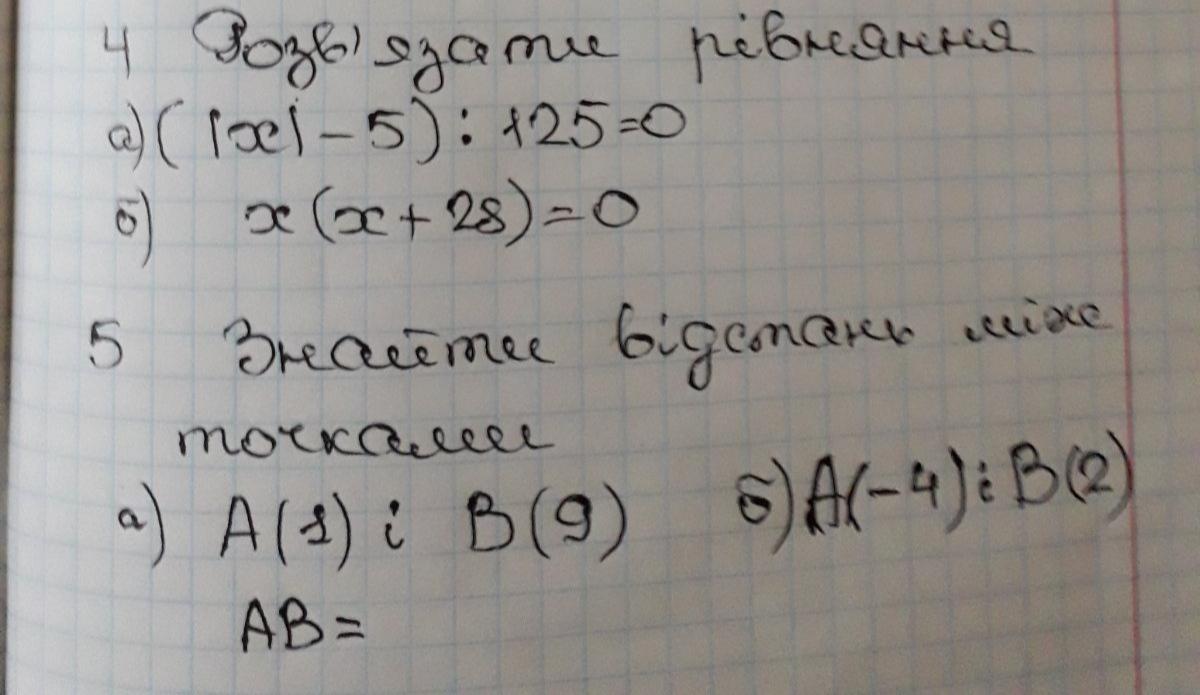 4 Розв'язати рівняння
а) (|x| - 5) : 125 = 0
б) x(x + 28) = 0
5 Знайти відстань між
точками
а) A(1) і B(9) б) A(-4) і B(2)
AB =